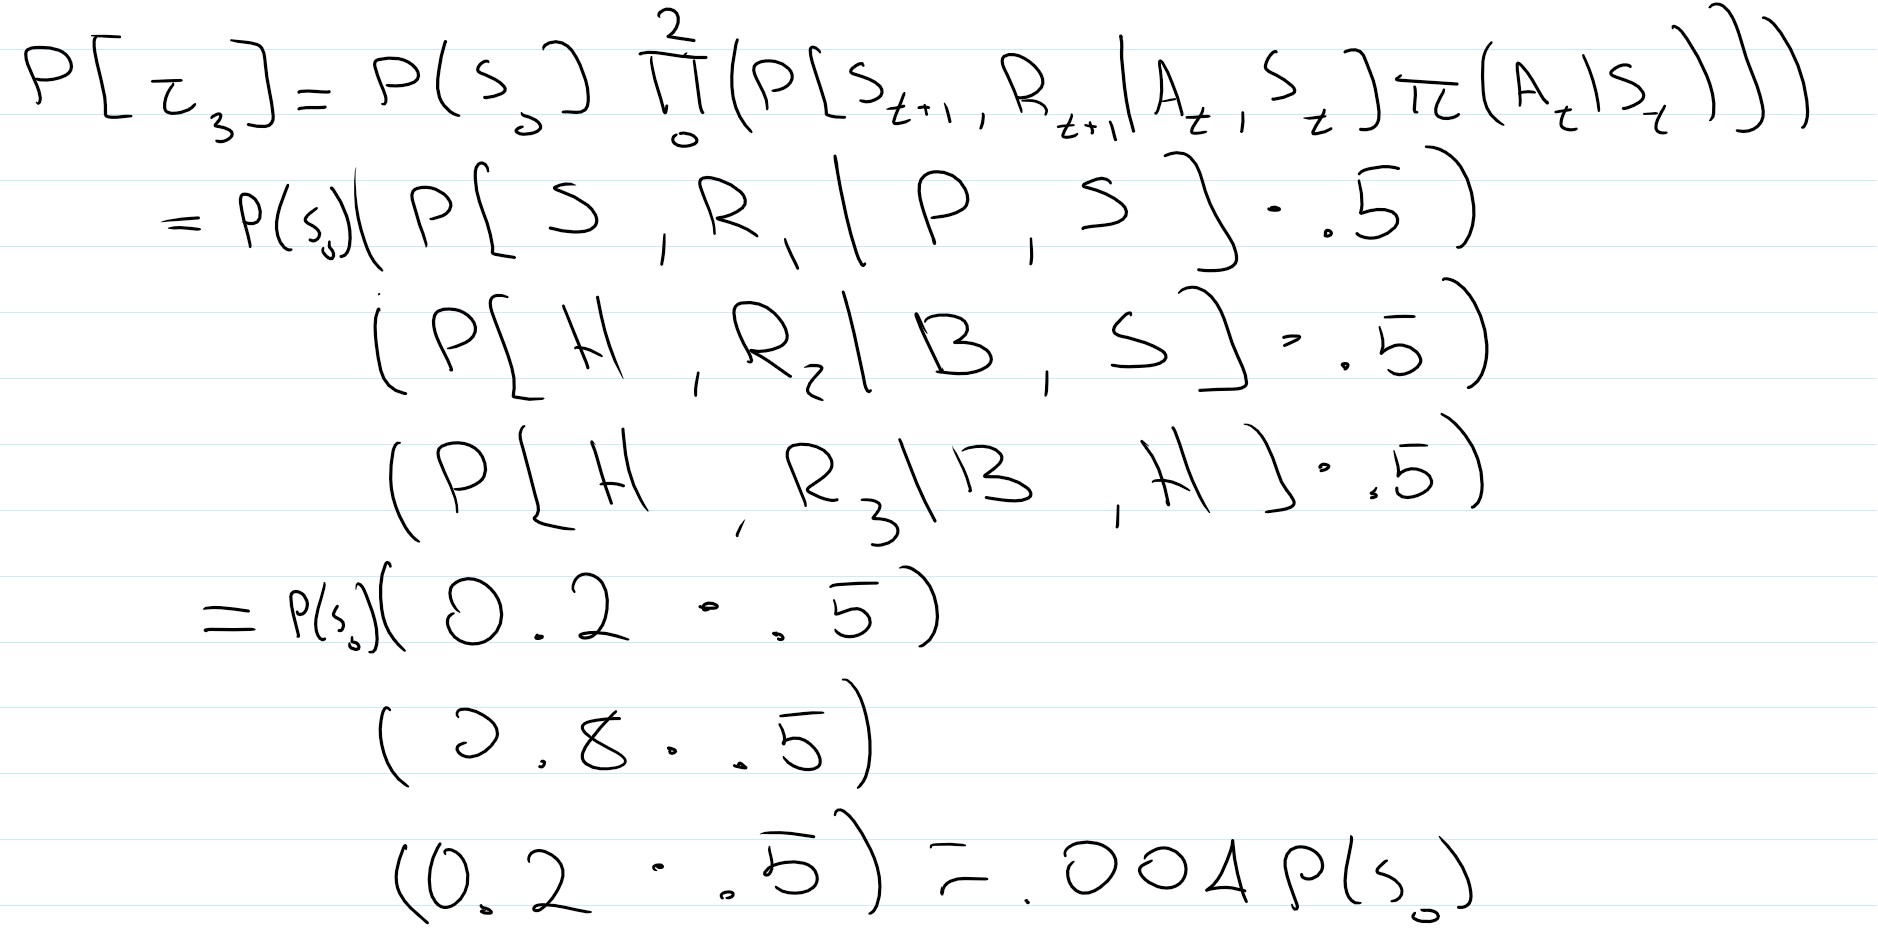 P[τ₃] = P(S₀) ∏₀² (P[Sₜ₊₁, Rₜ₊₁|Aₜ, Sₜ] π(Aₜ|Sₜ)]))
= P(S₀)(P[S, R₁|P, S] · .5)
(P[H, R₂|B, S] · .5)
(P[H, R₃|B, H] · .5)
= P(S₀)(0.2 · .5)
(0.8 · .5)
(0.2 · .5) = .004 P(S₀)